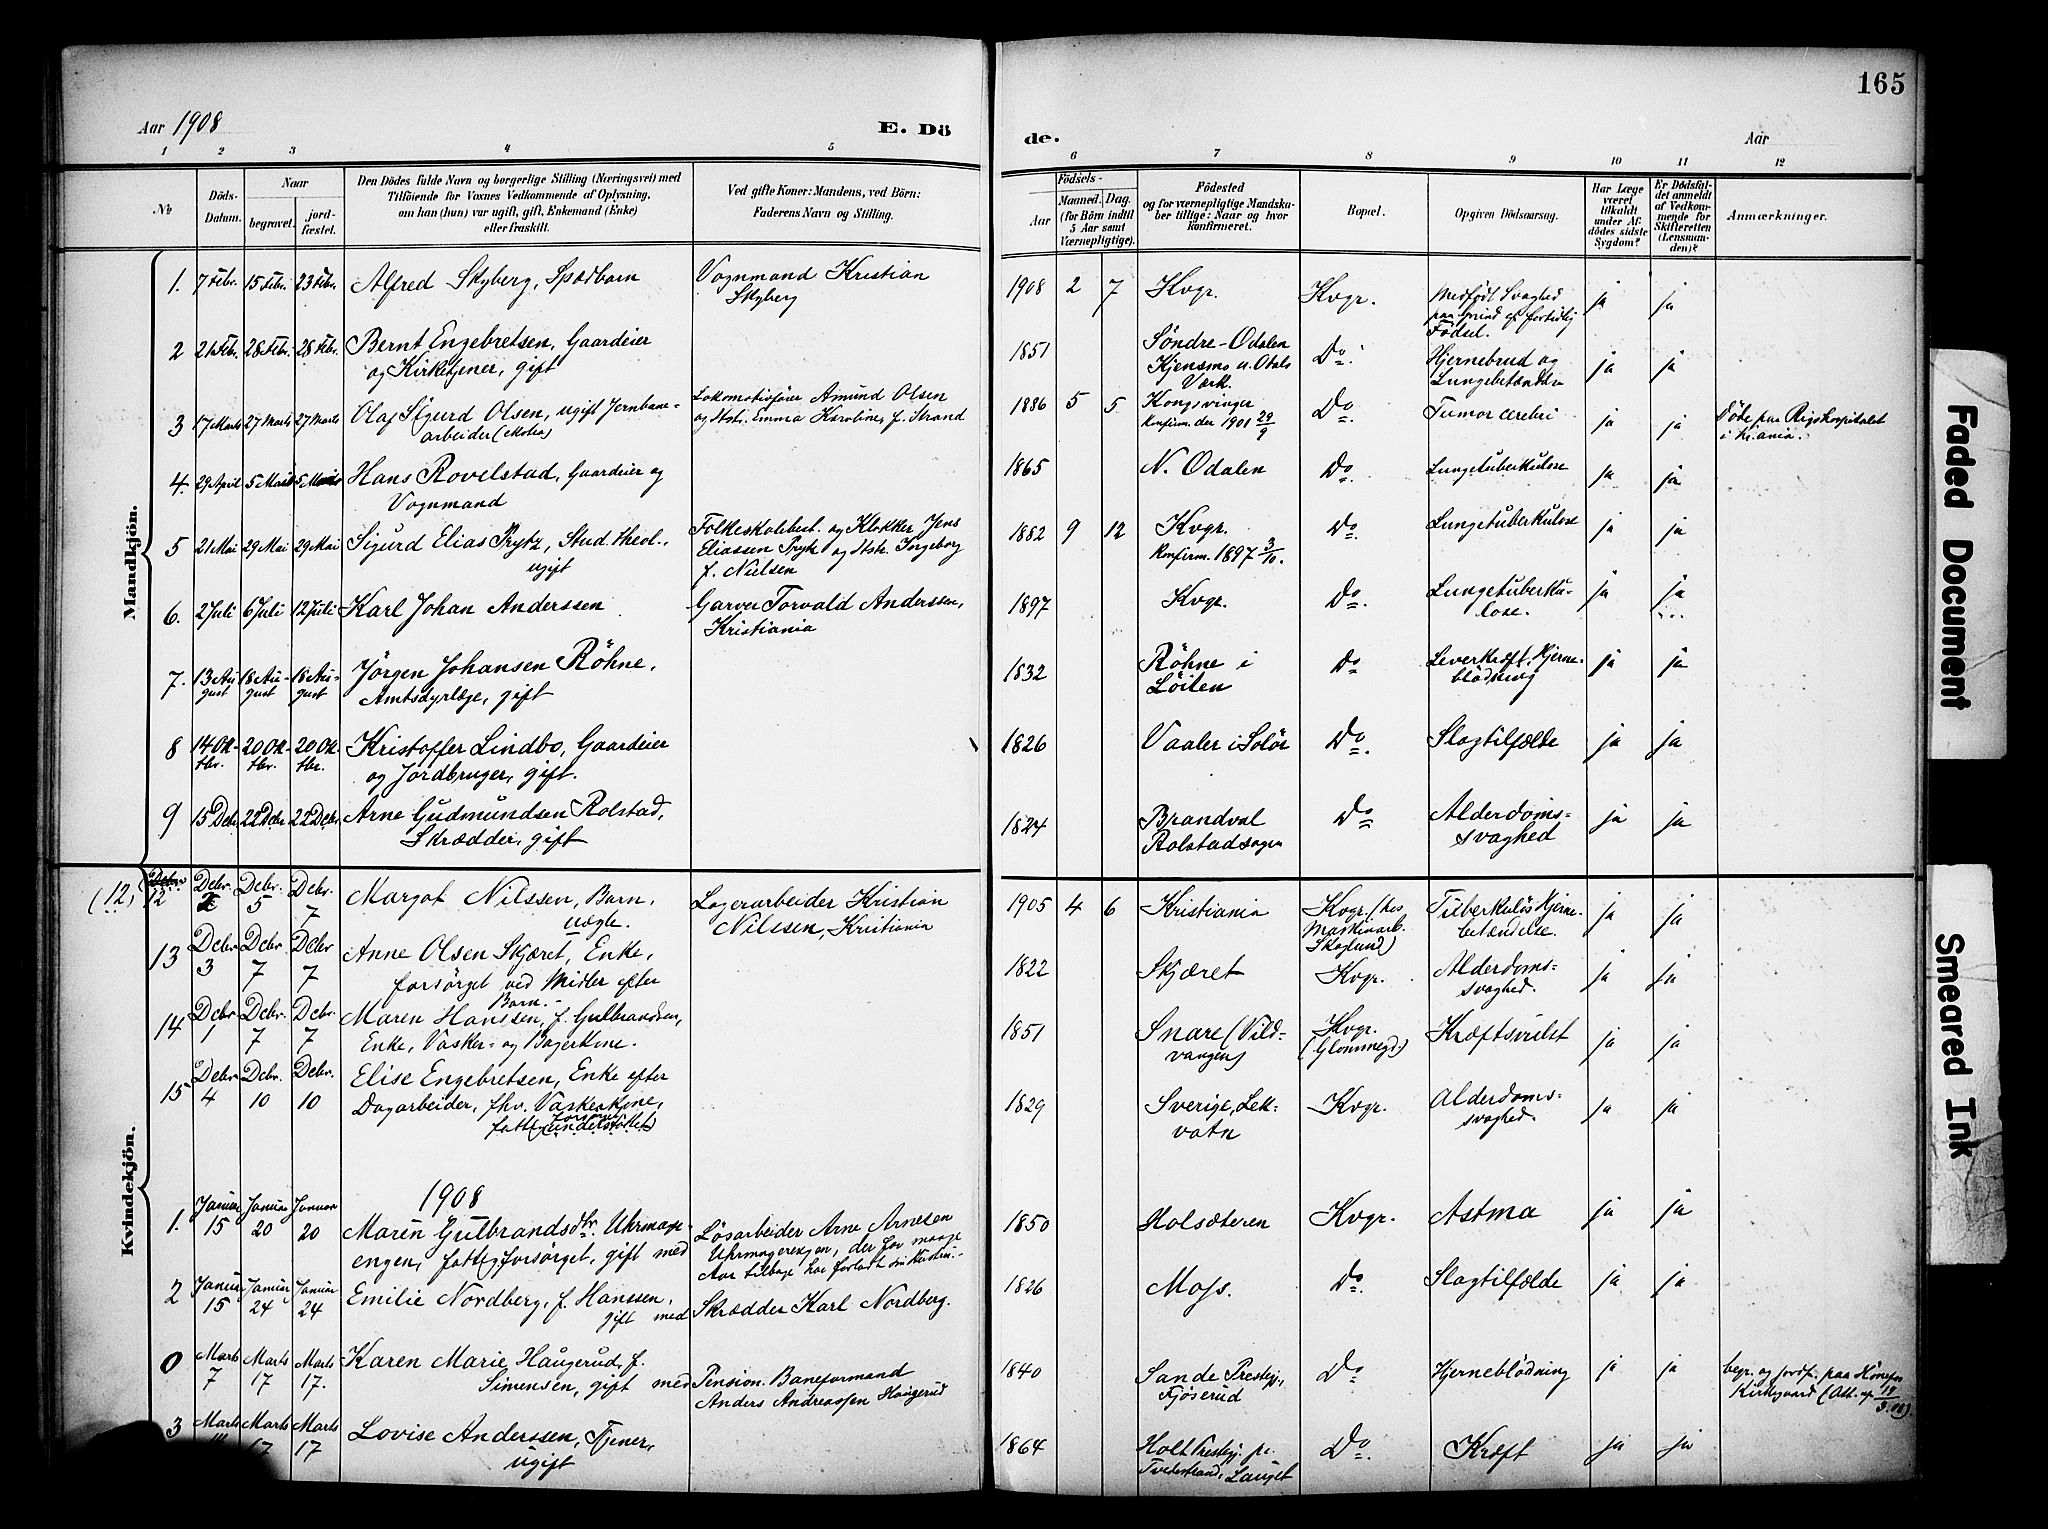 165
Aar 1908
E. Dö
de.
Aar
1 2 3 4 5 6 7 8 9 10 11 12
No
Döds-
Datum.
Naar
begravet.
jord-
fæstet.
Den Dödes fulde Navn og borgerlige Stilling (Næringsvei) med
Tilföiende for Voxnes Vedkommende af Oplysning,
om han (hun) var ugift, gift, Enkemand (Enke)
eller fraskilt.
Ved gifte Koner: Mandens, ved Börn:
Faderens Navn og Stilling.
Födsels-
Aar
Maaned. Dag.
(for Börn indtil
5 Aar samt
Værnepligtige).
Födested
og for værnepligtige Mandska-
ber tillige: Naar og hvor
konfirmeret.
Bopæl.
Opgiven Dödsaarsag.
Har Læge
været
tilkaldt
under Af-
dødes sidste
Sygdom?
Er Dödsfal-
det anmeldt
af Vedkom-
mende for
Skifteretten
(Lensman-
den)?
Anmærkninger.
Mandkjön.
1. 7 Febr. 15 Febr. 23 Febr. Alfred Skyberg, Spædbarn
Vognmand Kristian
Skyberg
1908 2 7 Kvgr. Kvgr. Medfödt Svaghed
paa Grund af fortidlig
Födsel. ja ja
2 21 Febr. 28 Febr. 28 Febr. Bernt Engebretsen, Gaardeier
og Kirketjener, gift
1851 Söndre-Odalen
Kjensmo u. Odals
Værk. Do. Hjernebrud og
Lungebetændelse ja ja
3 17 Marts 27 Marts 27 Marts Olaf Sigurd Olsen, ugift Jernbane-
arbeider
Lokomotivförer Amund Olsen
og Hstr. Emma Karoline, f. Strand
1886 5 5 Kongsvinger
Konfirm. der 1901 29/9 Do. Tumor cerebri ja ja Döde paa Rigshospitalet
i Kr.ania.
4. 29 April 5 Mai 5 Mai Hans Rovelstad, Gaardeier og
Vognmand
1865 N. Odalen Do. Lungetuberkulose ja ja
5 21 Mai 29 Mai 29 Mai Sigurd Elias Prytz, Stud. theol.,
ugift
Folkeskolebest. og Klokker Jens
Eliassen Prytz og Hstr. Ingeborg
f. Nielsen
1882 9 12 Kvgr.
Konfirm. 1897 3/10. Do. Lungetuberkulose ja ja
6. 2 Juli 6 Juli 12 Juli Karl Johan Anderssen
Garver Torvald Anderssen,
Kristiania
1897 Kvgr. Do. Lungetuberku-
lose. ja ja
7. 13 Au-
gust 18 Au-
gust 18 Au-
gust Jörgen Johansen Röhne,
Amtsdyrlæge, gift
1832 Röhne i
Löiten Do Leverkræft. Hjerne-
blödning ja ja
8 14 Ok-
tbr. 20 Ok-
tbr. 20 Ok-
tbr. Kristoffer Lindbo, Gaardeier
og Jordbruger, gift.
1826 Vaaler i Solör Do. Slagtilfælde ja ja
9 15 Debr 22 Debr 22 Debr. Arne Gudmundsen Rolstad,
Skrædder, gift
1824 Brandval
Rolstadsogn Do Alderdoms-
svaghed ja ja
Kvindekjön.
(12) 12 Debr. 2 Debr. 5 Debr. 7 Margot Nilssen, Barn,
uægte.
Lagerarbeider Kristian
Nilssen, Kristiania
1905 4 6 Kristiania Kvgr. (hos
Maskinarb.
Skoglund) Tuberkulös Hjerne-
betændelse. ja ja
13 Debr 3 Debr. 7 Debr 7 Anne Olsen Skjæret, Enke,
forsörget ved Midler efter
Barn.
1822 Skjæret Kvgr. Alderdoms-
svaghed. ja ja
14 Debr 1 Debr. 7 Debr. 7 Maren Hanssen, f. Gulbrandsen,
Enke, Vasker- og Bagerkone.
1851 Snare (Vild-
vangen) Kvgr.
(Glommegd.) Kræftsvulst ja ja
15 Debr 4 Debr. 10 Debr. 10 Elise Engebretsen, Enke efter
Dagarbeider, fhv. Vaskekone,
fattig understöttet)
1829 Sverige, Lek-
vatn Kvgr. Alderdoms-
svaghed. ja ja
1908
1. Januar 15 Januar 20 Januar 20 Maren Gulbrandsdtr. Uhrmager-
engen, fattigforsörget, gift med
Lösarbeider Arne Arnesen
Uhrmagerengen, der for mange
Aar tilbage har forladt sin Hustru.
1850 Holsæteren Kvgr. Astma ja ja
2 Januar 15 Januar 24 Januar 24 Emilie Nordberg, f. Hanssen,
gift med Skrædder Karl Nordberg.
1826 Moss. Do. Slagtilfælde ja ja
0 Marts 7 Marts 17 Marts 17. Karen Marie Haugerud, f.
Simensen, gift med Pension. Baneformand
Anders Andreassen Haugerud
1840 Sande Prestegj.,
Fjöserud Do. Hjerneblödning ja ja begr. og jordf. paa Hönefos
Kirkegaard (Att. af 18/3.08).
3 Marts Marts 17 Marts 17 Lovise Anderssen, Tjener,
ugift
1864 Holt Prestegj. pr.
Tvedestrand, Do. Kræft ja ja
Faded Document
Smeared Ink